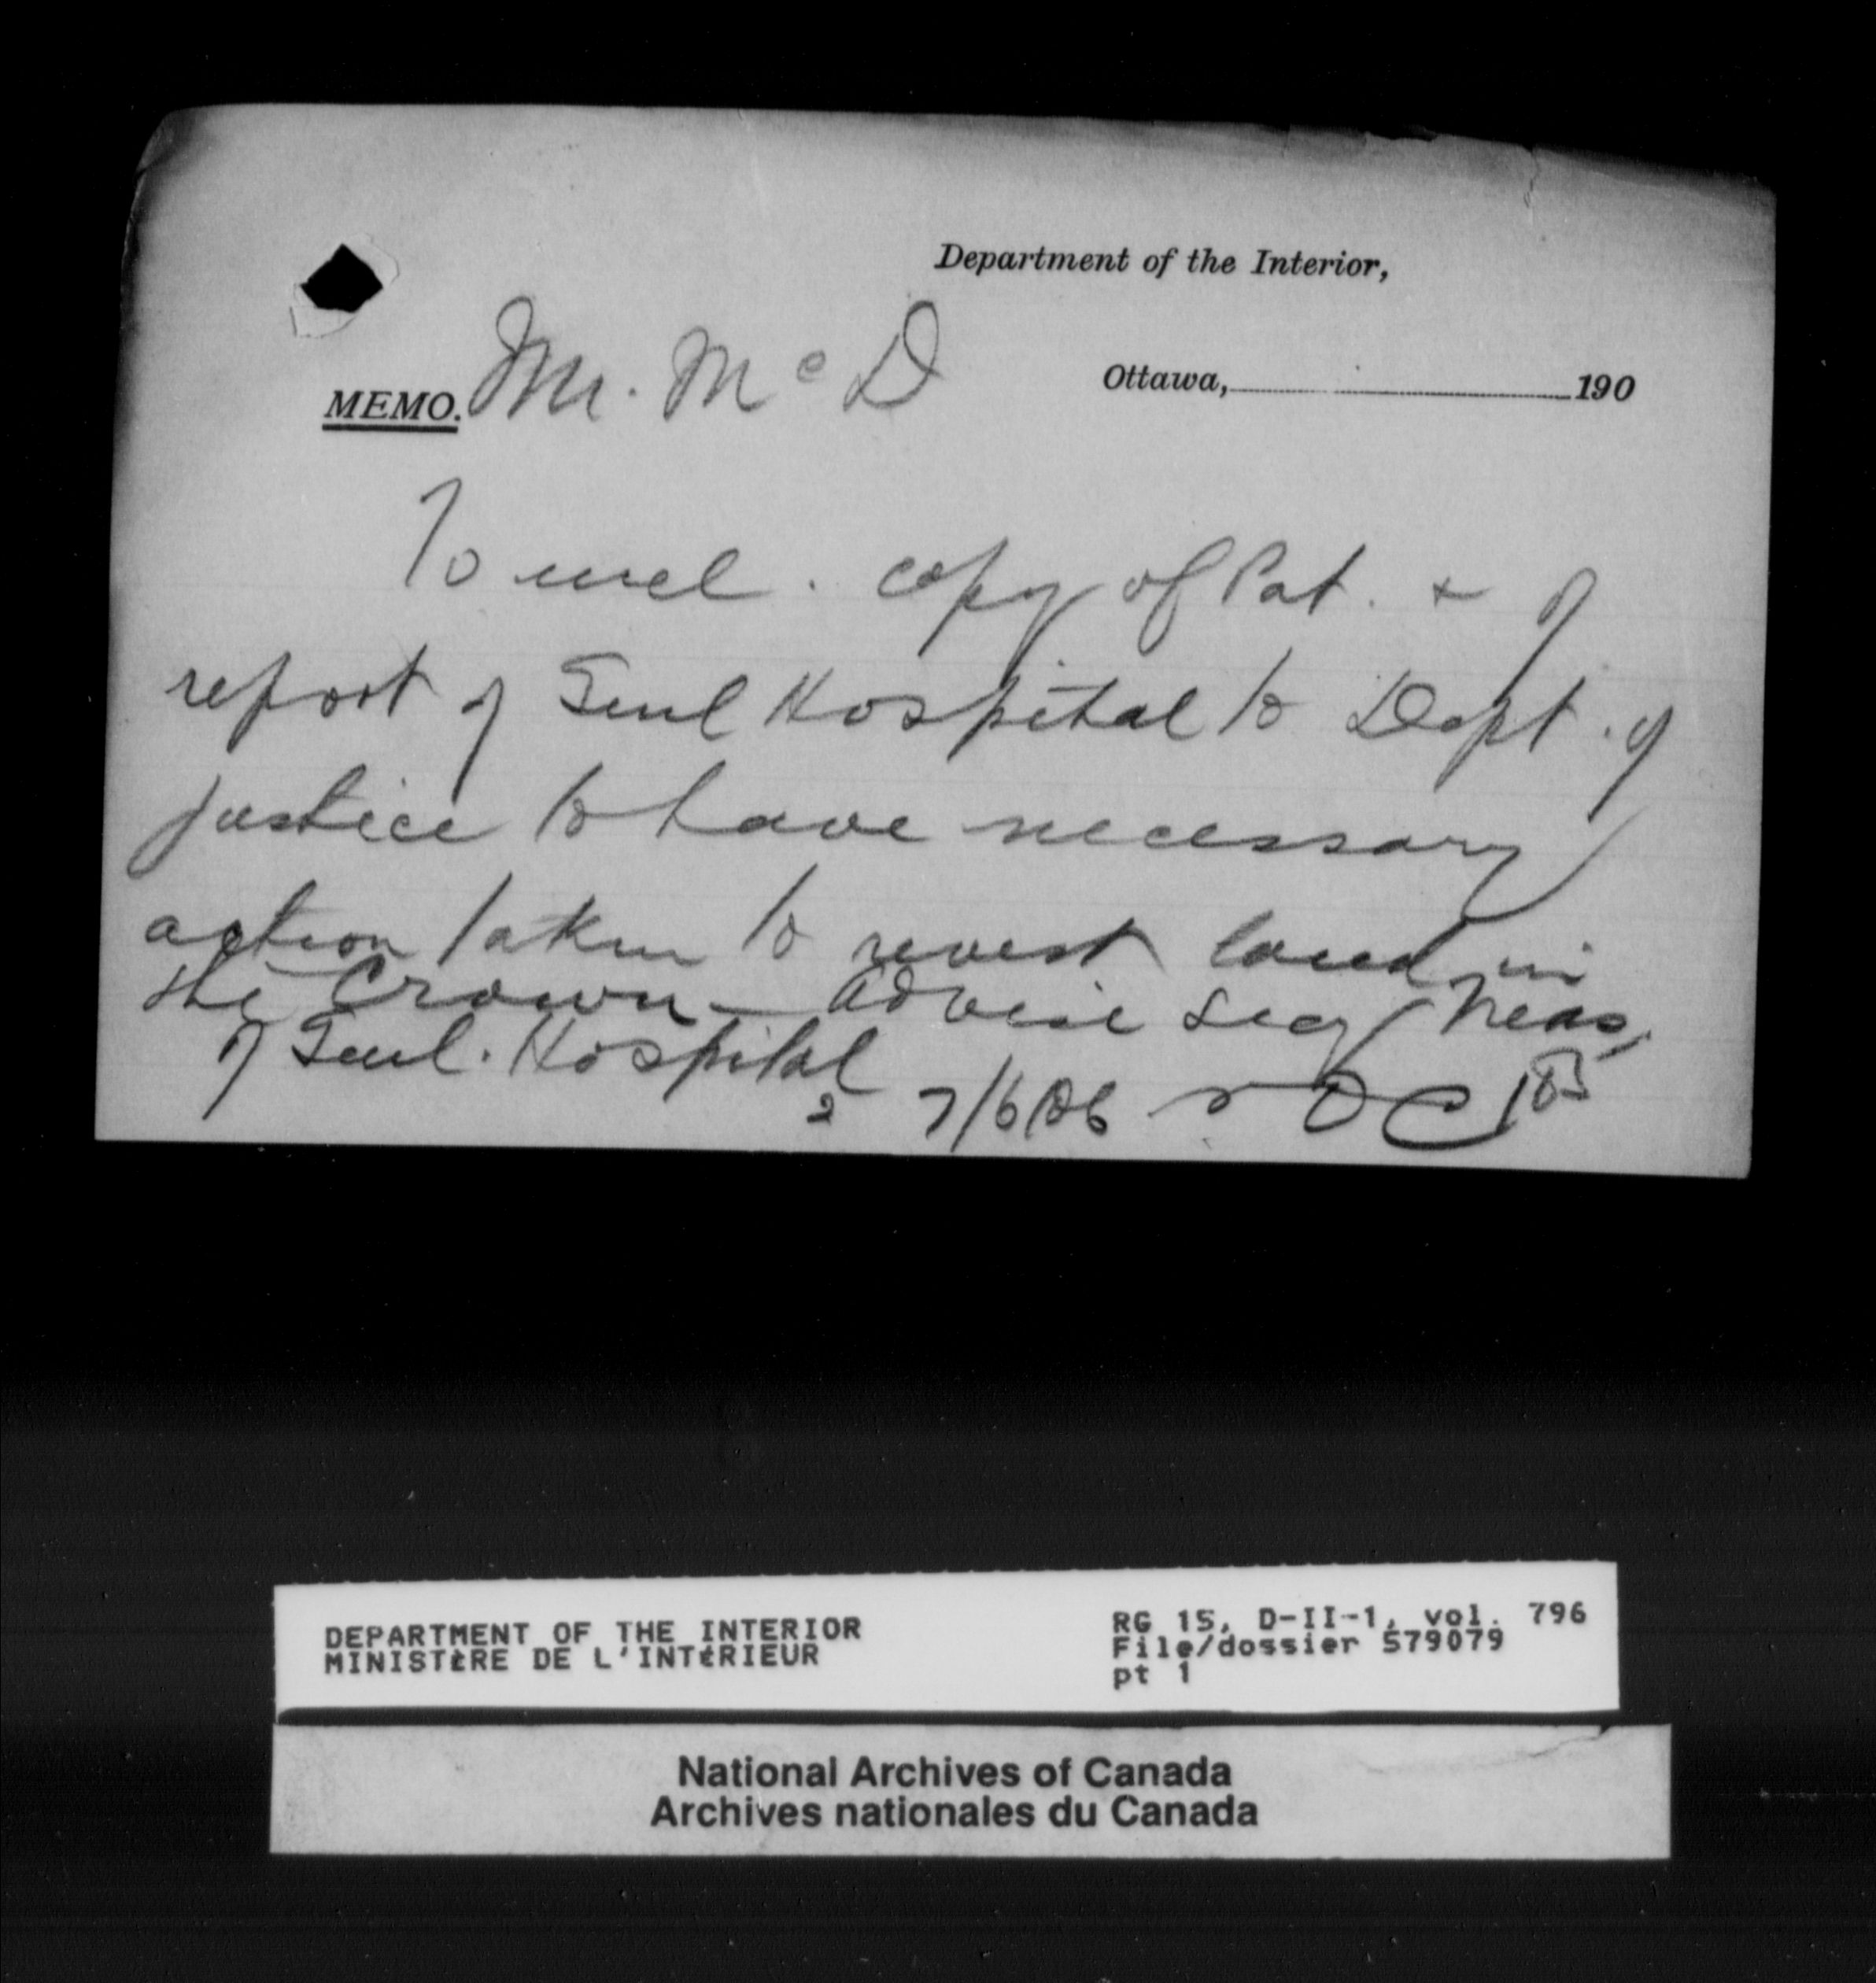 Department of the Interior,
Ottawa, 190
MEMO. Mr. McD
To encl. copy of Pat. & of
report of Genl Hospital to Dept. of
justice to have necessary
action taken to revest land in
the Crown – Advise Secy Treas,
of Genl. Hospital
7/6/06
DEPARTMENT OF THE INTERIOR
MINISTÈRE DE L'INTÉRIEUR
RG 15, D-II-1, vol. 796
File/dossier 579079
pt 1
National Archives of Canada
Archives nationales du Canada